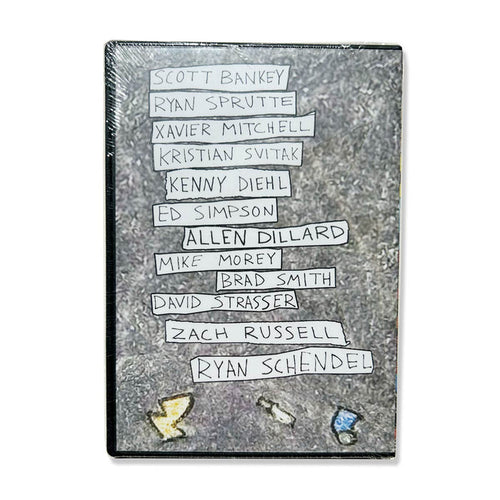 SCOTT BANKEY
RYAN SPRUTTE
XAVIER MITCHELL
KRISTIAN SVITAK
KENNY DIEHL
ED SIMPSON
ALLEN DILLARD
MIKE MOREY
BRAD SMITH
DAVID STRASSER
ZACH RUSSELL
RYAN SCHENDEL